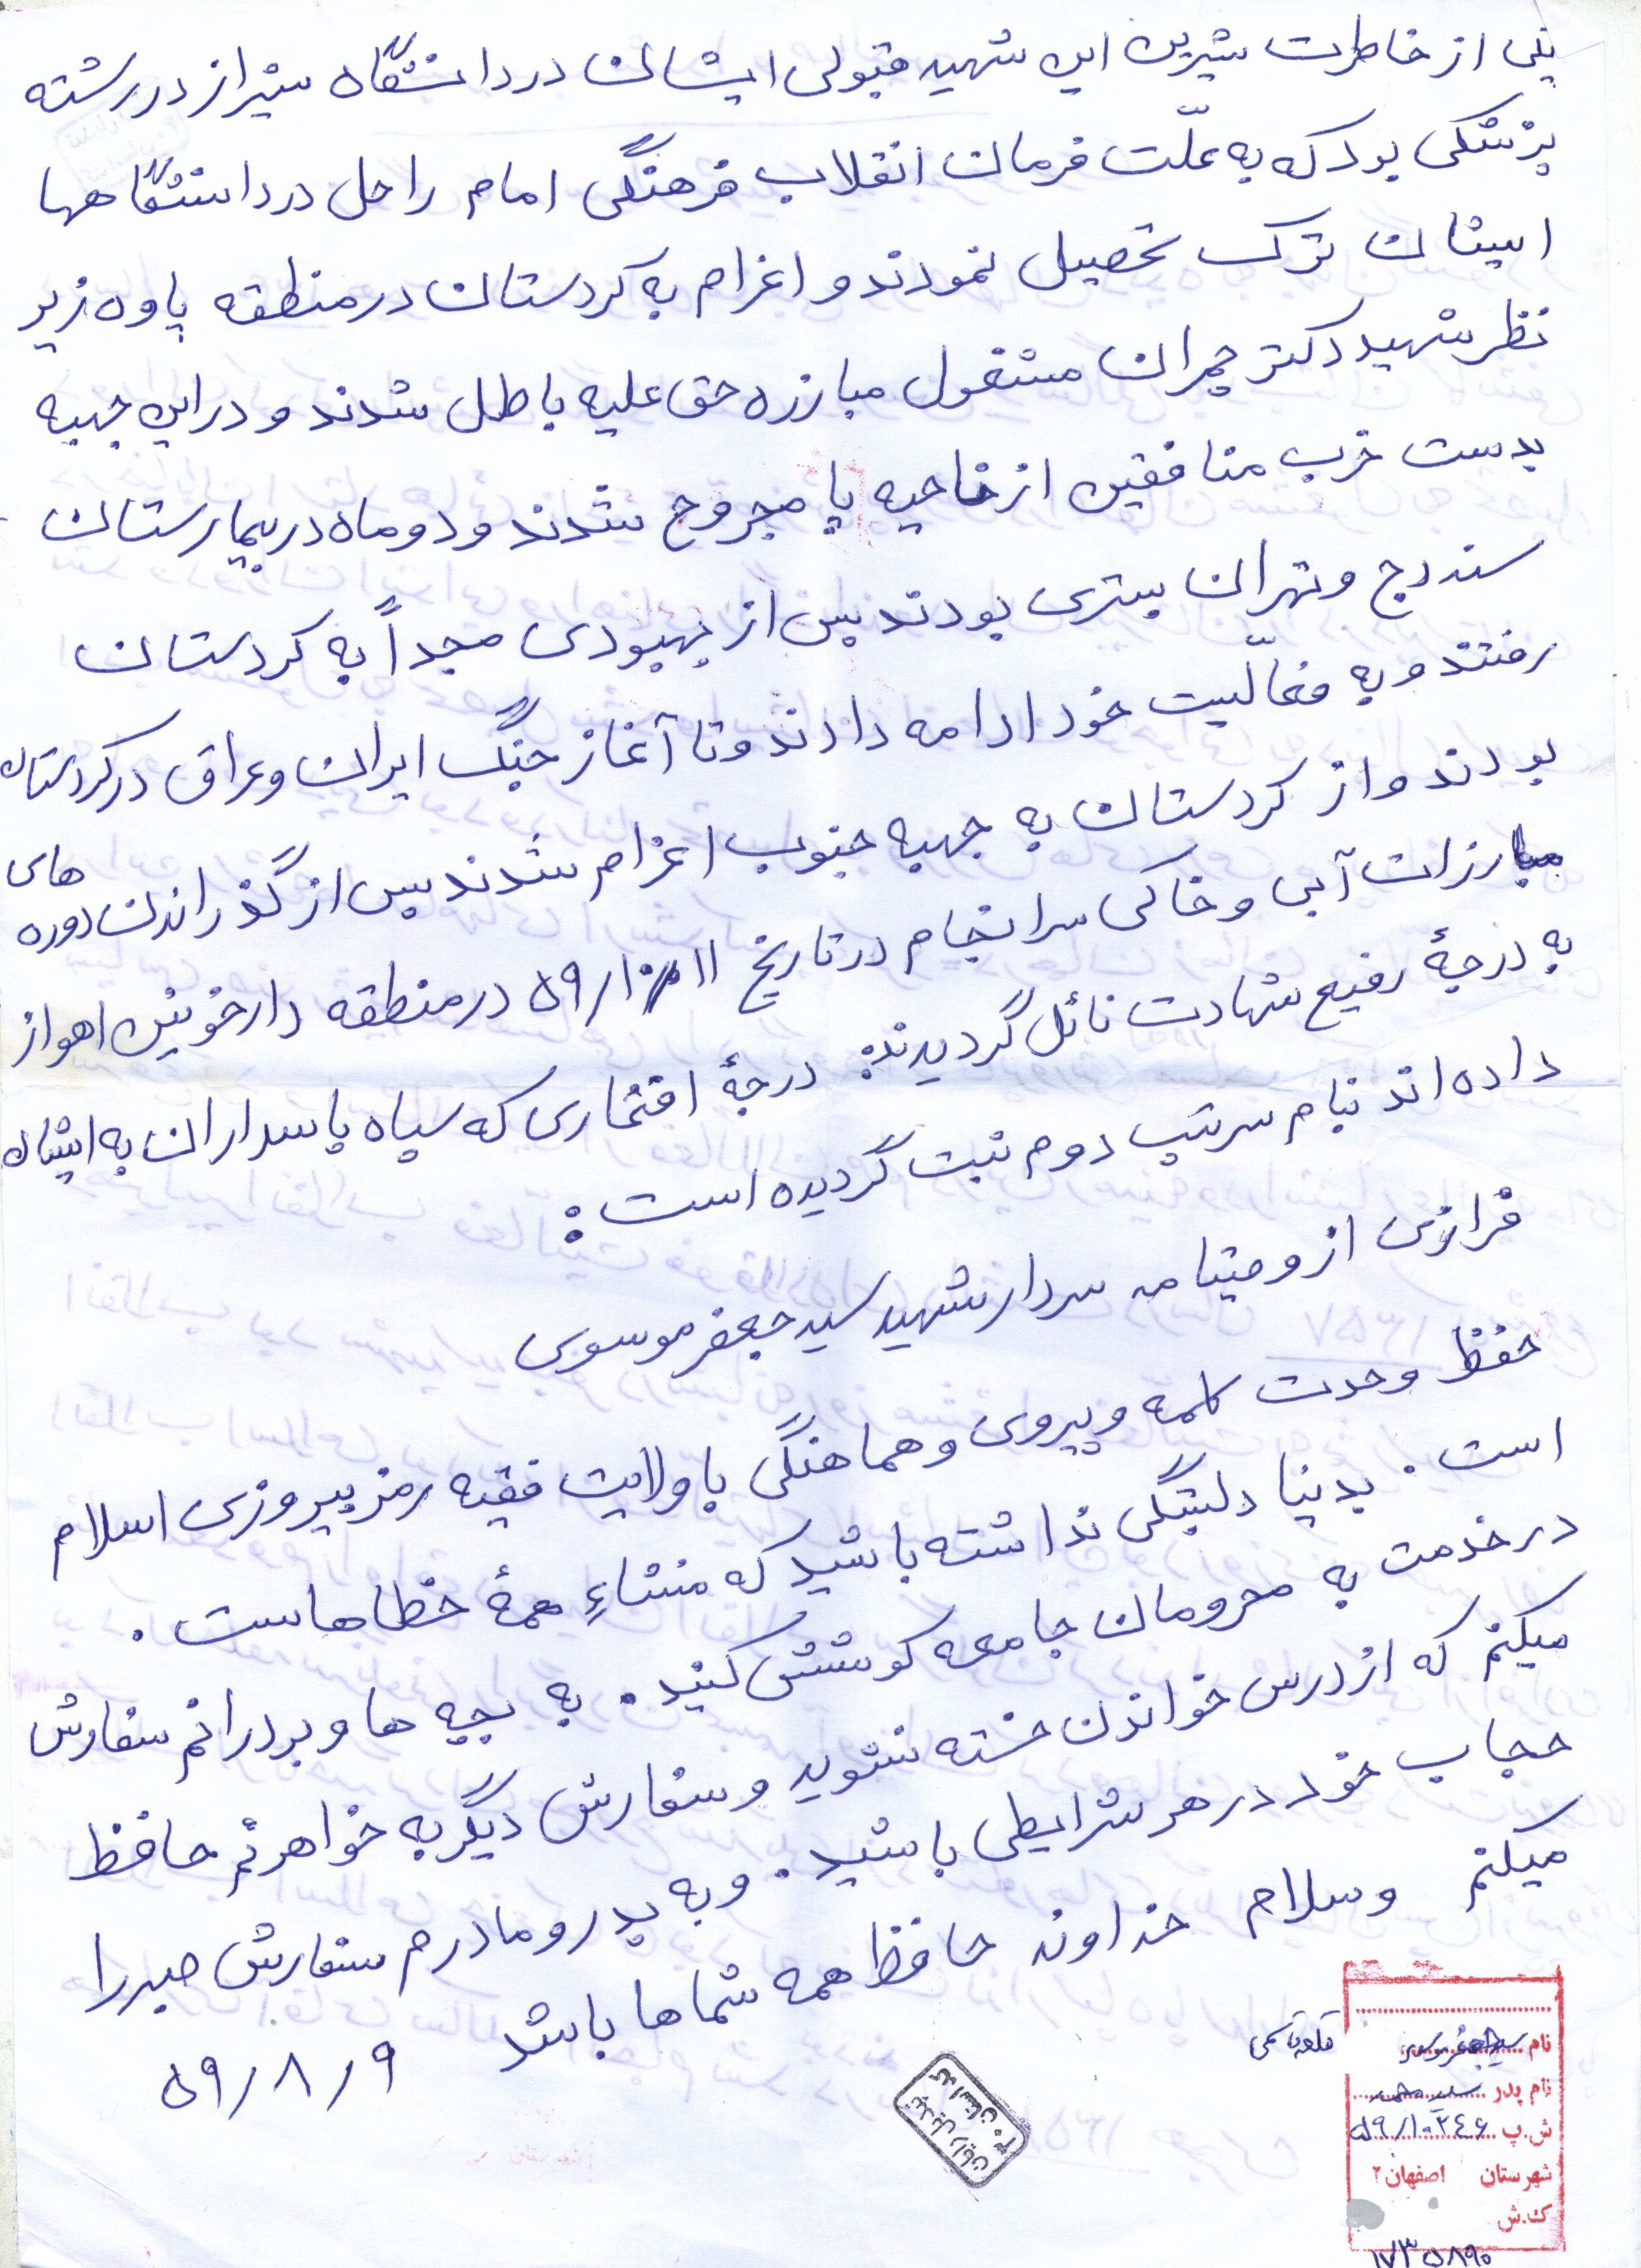 یکی از خاطرات شیرین این شهید قبولی ایشان در دانشگاه شیراز در رشته
پزشکی بود که به علّت فرمان انقلاب فرهنگی امام راحل در دانشگاهها
ایشان ترک تحصیل نمودند و اعزام به کردستان در منطقه پاوه زیر
نظر شهید دکتر چمران مشغول مبارزه حق علیه باطل شدند و در این جبهه
بدست حزب منافقین از ناحیه پا مجروح شدند و دو ماه در بیمارستان
سنندج و تهران بستری بودند پس از بهبودی مجداً به کردستان
رفتند و به فعالّیت خود ادامه دادند و تا آغاز جنگ ایران و عراق در کردستان
بودند و از کردستان به جبهه جنوب اعزام شدند پس از گذراندن دوره های
مبارزات آبی و خاکی سرانجام در تاریخ ۵۹/۱۰/۱۱ در منطقه دارخوئین اهواز
به درجهٔ رفیع شهادت نائل گردیدند: درجهٔ افتخاری که سپاه پاسداران به ایشان
داده اند بنام سرتیپ دوم ثبت گردیده است:
فرازی از وصیتنامه سردار شهید سید جعفر موسوی
حفظ وحدت کلمه و پیروی و هماهنگی با ولایت فقیه رمز پیروزی اسلام
است. بدنیا دلبستگی نداشته باشید که منشاءِ همهٔ خطاهاست.
در خدمت به محرومان جامعه کوشش کنید. به بچه ها و بردرانم سفارش
میکنم که از درس خواندن خسته نشوید و سفارش دیگر به خواهرنم حافظ
حجاب خود در هر شرایطی باشید. و به پدر و مادرم سفارش صبر را
میکنم وسلام خداوند حافظ همه شماها باشد ۵۹/۸/۹
نام سید جعفر موسوی
نام پدر سید محمد
ش.پ ۵۹/۱۰۲۴۶
شهرستان اصفهان ۲
ک.ش
۱۷۳۵۸۹۰